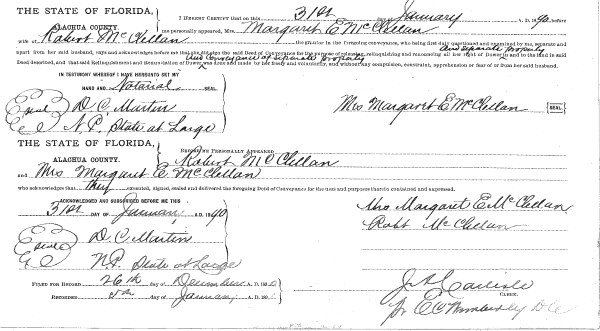 THE STATE OF FLORIDA,
ALACHUA COUNTY.
I HEREBY CERTIFY that on this 31st day of January A. D. 1890, before
me personally appeared, Mrs. Margaret E. McClellan
wife of Robert McClellan the grantor in the foregoing conveyance, who being first duly questioned and examined by me, separate and
apart from her said husband, says and acknowledges before me that she signed the said Deed of Conveyance for the purpose of releasing, relinquishing and renouncing all her right of Dower in and to the said and separate property
Deed described, and that said Relinquishment and Renunciation of Dower and conveyance of separate property was done and made by her freely and voluntarily, and without any compulsion, constraint, apprehension or fear of or from her said husband.
IN TESTIMONY WHEREOF I HAVE HEREUNTO SET MY
HAND AND Notarial SEAL.
Seal D. C. Martin
N. P. State at Large
Mrs Margaret E McClellan SEAL.
THE STATE OF FLORIDA,
ALACHUA COUNTY.
BEFORE ME PERSONALLY APPEARED Robert McClellan
and Mrs Margaret E. McClellan
who acknowledges that they executed, signed, sealed and delivered the foregoing Deed of Conveyance for the uses and purposes therein contained and expressed.
ACKNOWLEDGED AND SUBSCRIBED BEFORE ME THIS
31st DAY OF January A. D. 1890
Seal D. C. Martin
N.P. State at Large
Mrs. Margaret E McClellan
Robt McClellan
FILED FOR RECORD 26th day of December A. D. 189
RECORDED day of January A. D. 189
J A Carlisle
CLERK.
pr E C Wimberley D C